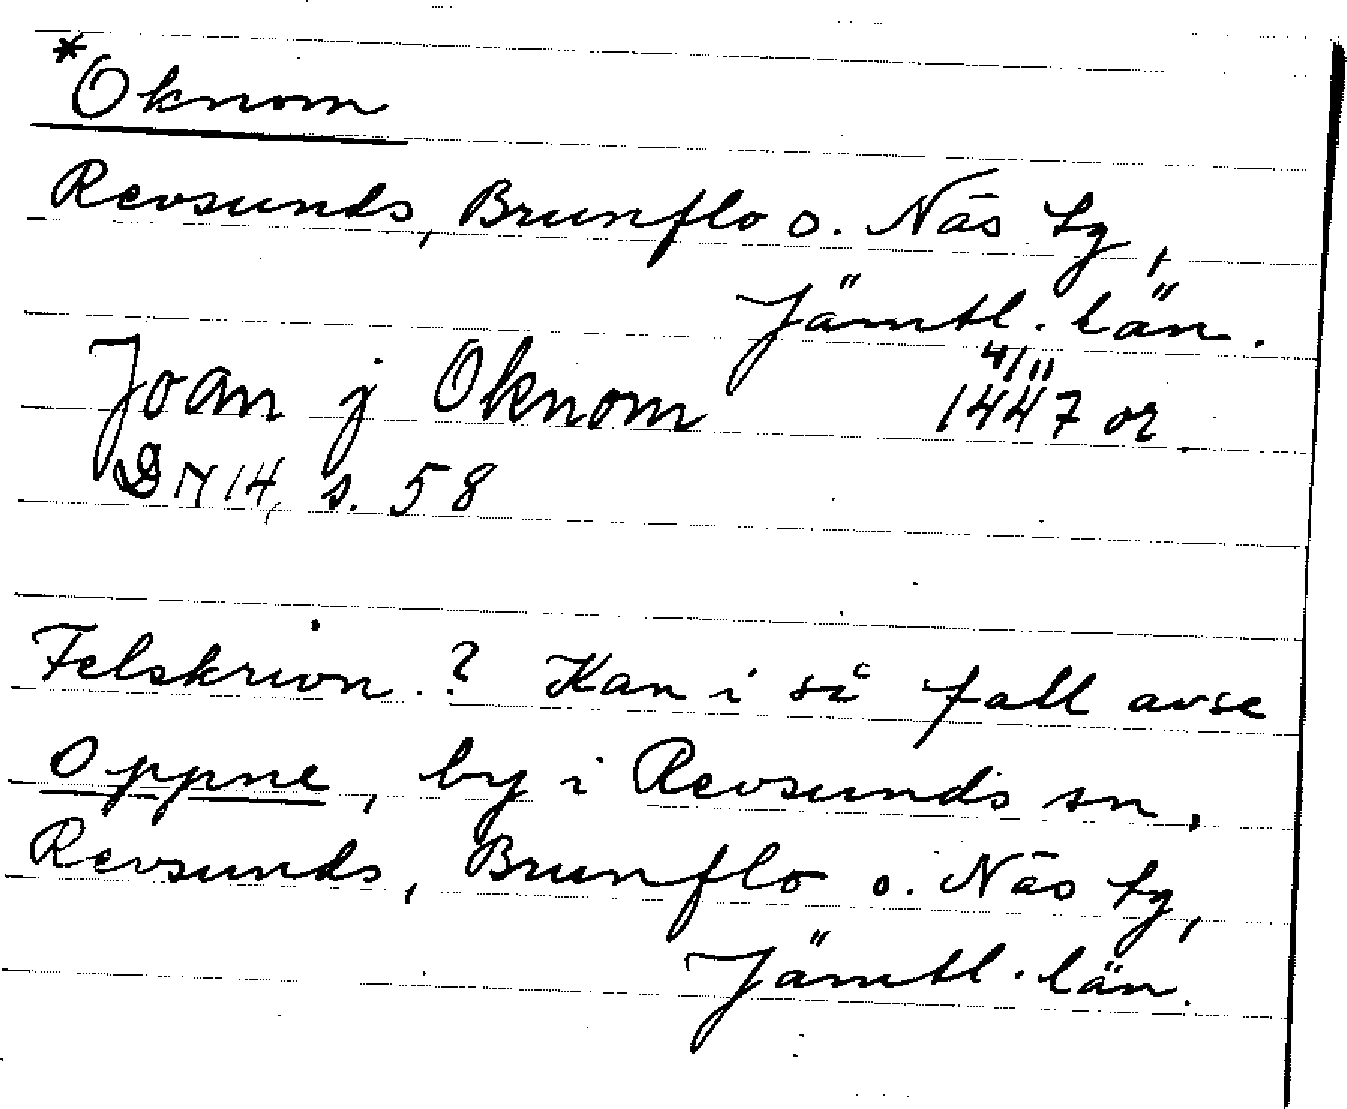 *Oknom
Revsunds, Brunflo o. Näs tg,
Jämtl. län.
Joan j Oknom 4/11 1447 or
DN 14, s. 58
Felskrivn.? Kan i så fall avse
Oppne, by i Revsunds sn,
Revsunds, Brunflo o. Näs tg,
Jämtl. län.